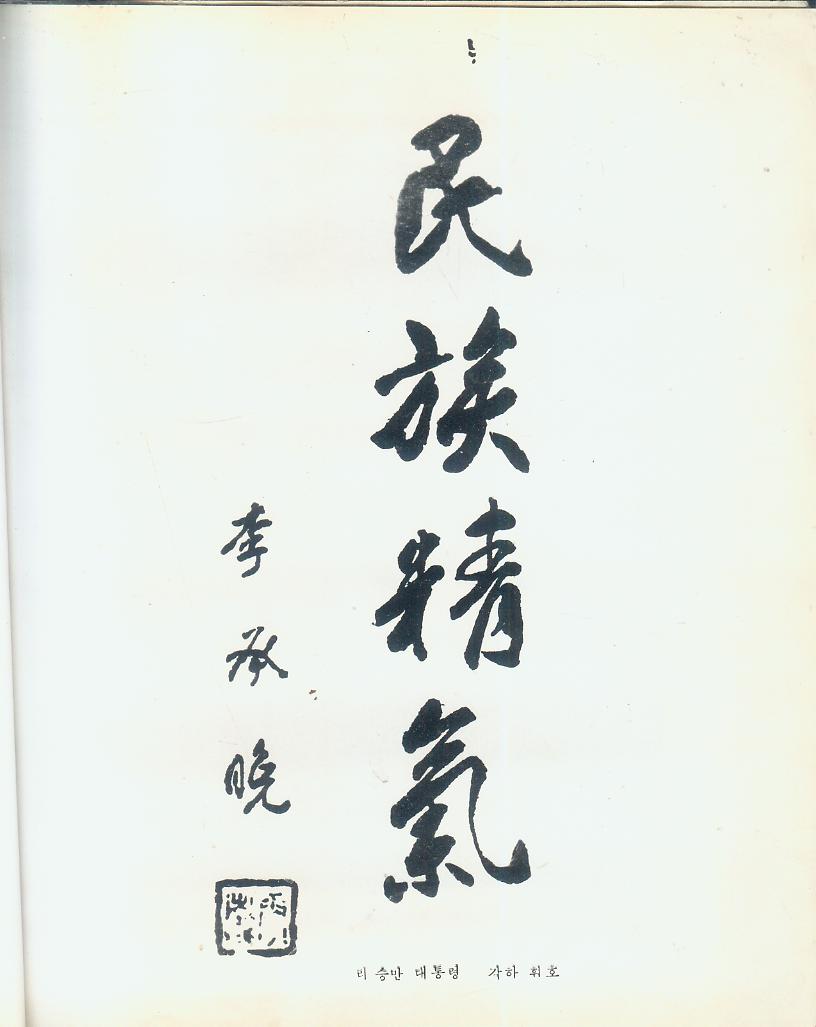 民族精氣
李承晩
리 승만 대통령 각하 휘호